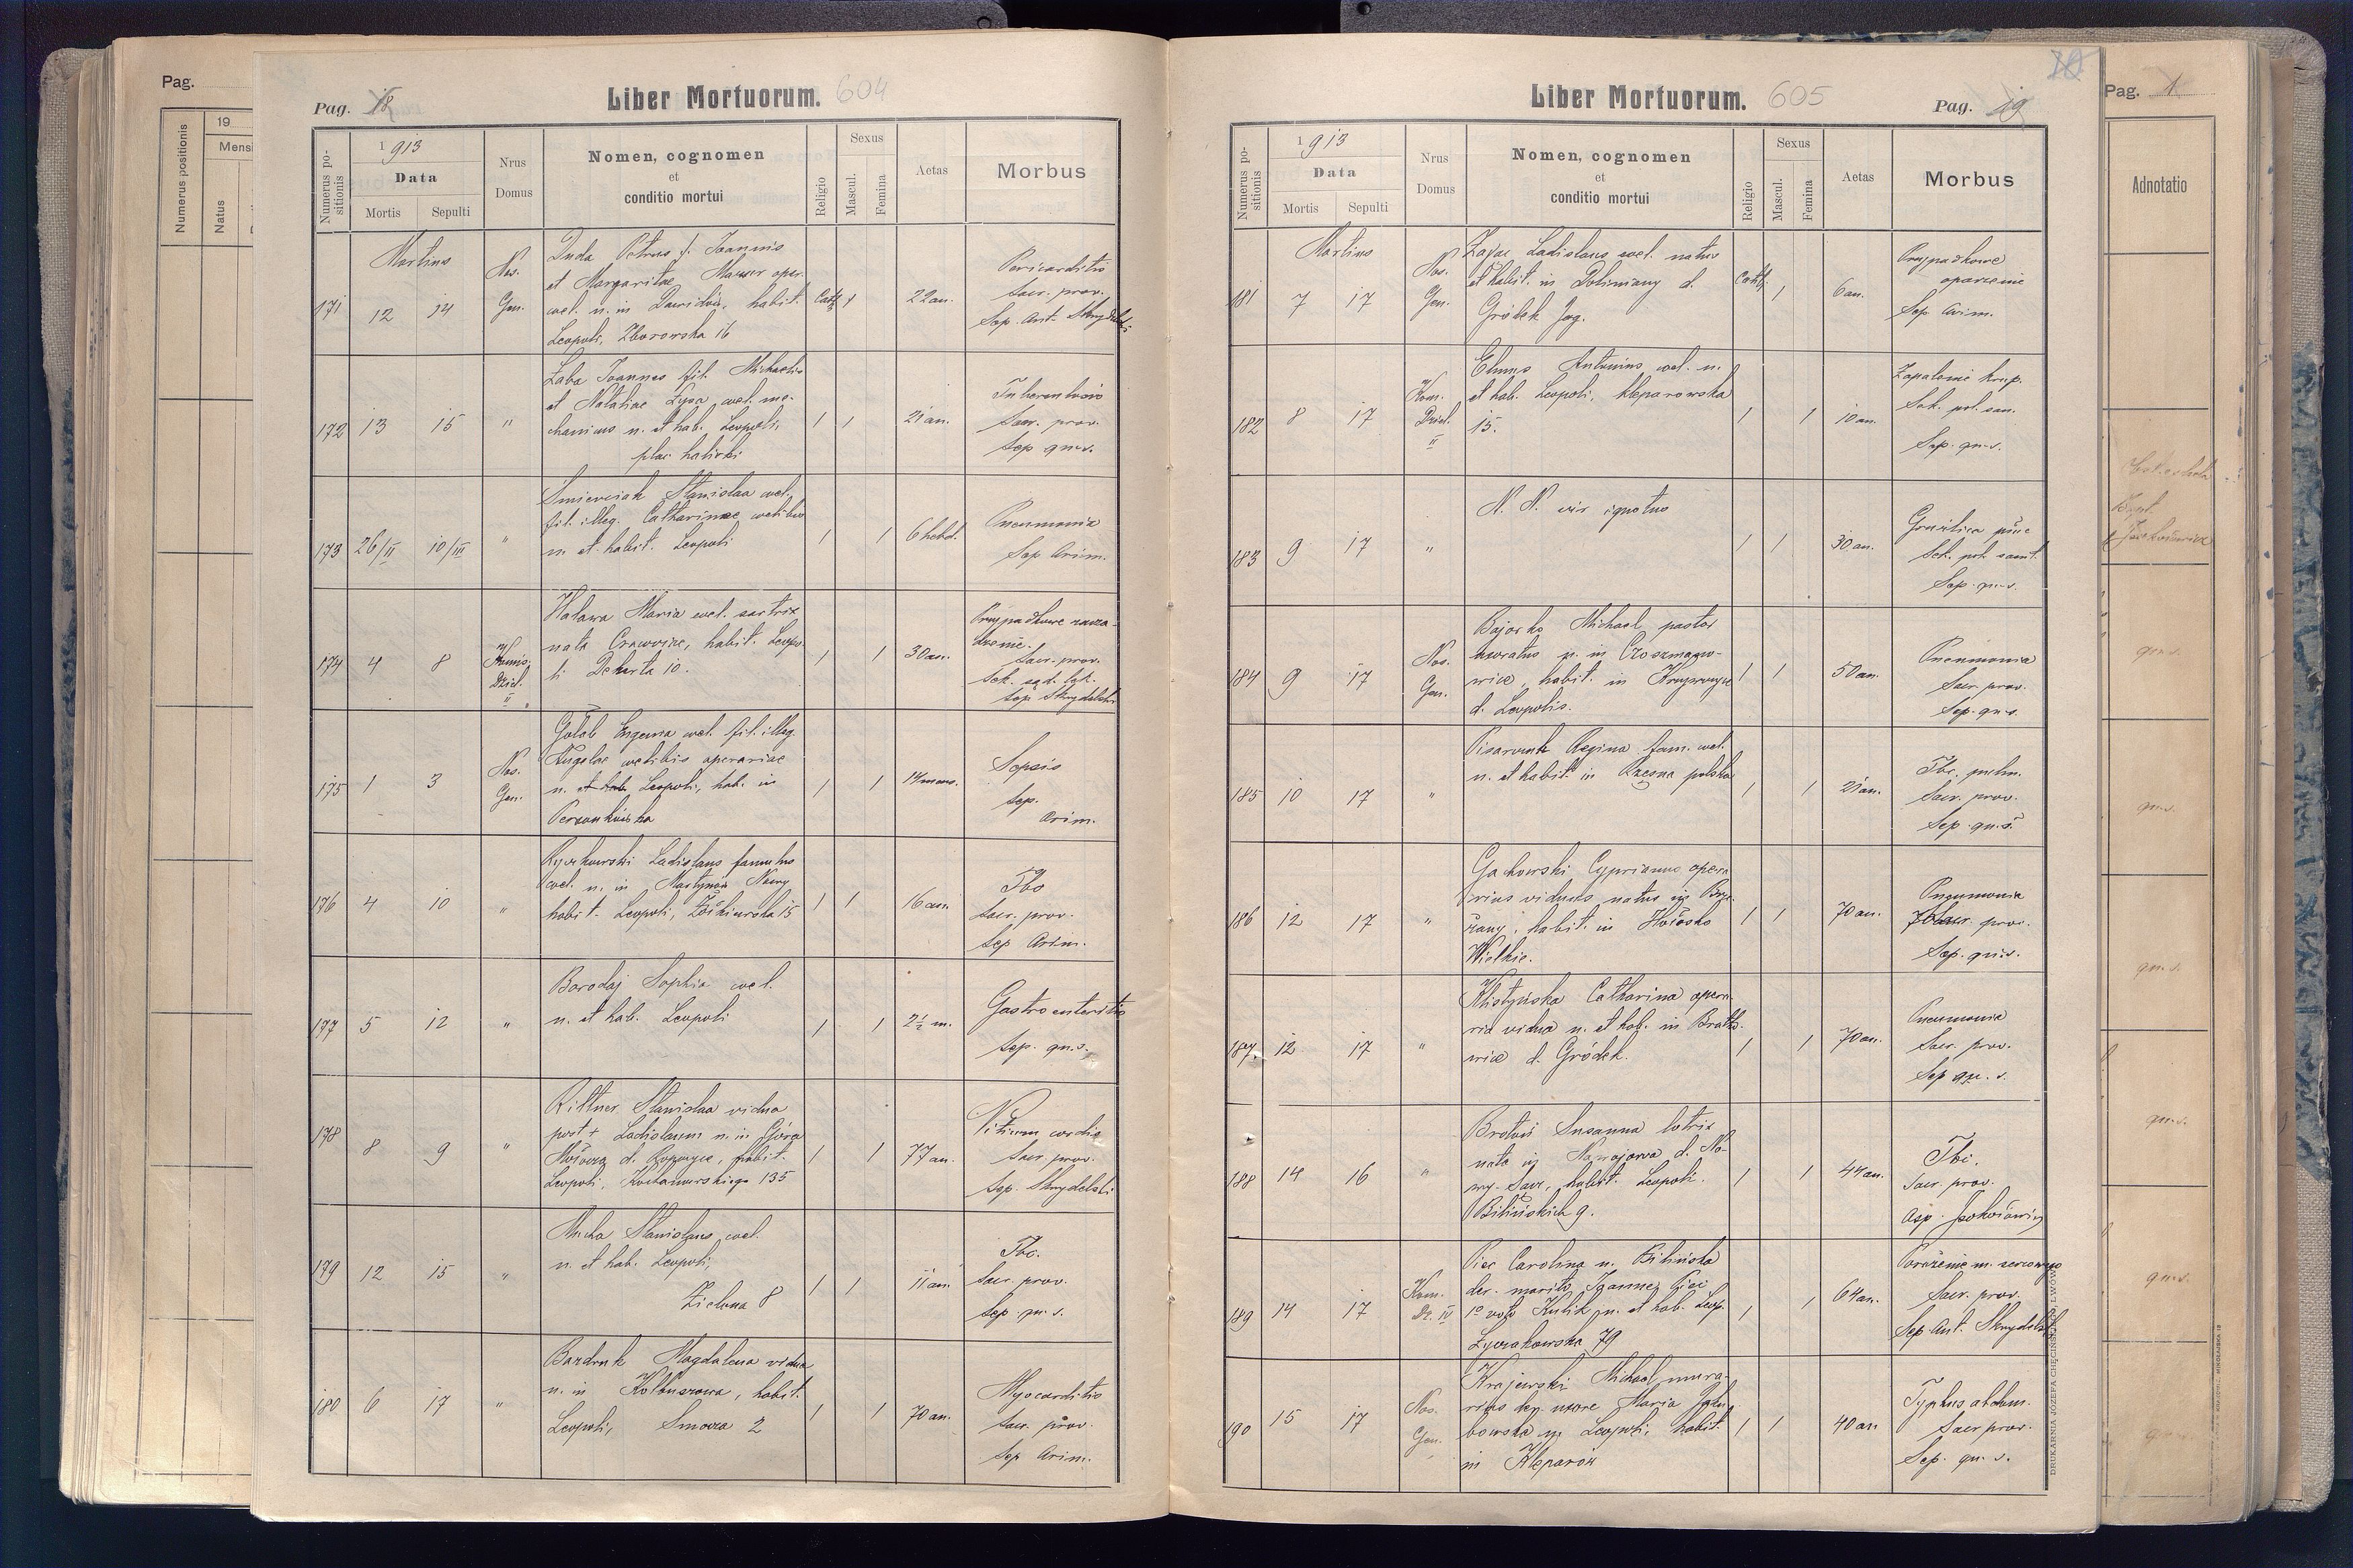 Pag. 18
Liber Mortuorum. 604
Numerus positionis
1913
Data
Mortis
Sepulti
Nrus Domus
Nomen, cognomen
et
conditio mortui
Religio
Sexus
Mascul.
Femina
Aetas
Morbus
Martius
171 12 14
Nos. Gen.
Duda Petrus f. Joannis
et Margaritae Mauser oper.
cael. n. in habit.
Leopoli, Zborowska 16
Cath. 1 22 an.
Pericarditis
Sacr. prov.
Sep. Ant. Skrydelski
172 13 15 "
Żaba Joannes fil. Michaelis
et Nataliae Łysa cael. me-
chanicus n. et hab. Leopoli,
plac halicki
1 1 21 an.
Tuberculosis
Sacr. prov.
Sep qu. s.
173 26/II 10/III "
Stanislaa cael.
fil. illeg. Catharinae caelibis
n. et habit. Leopoli
1 1 6 hebd.
Pneumonia
Sep Arim.
174 4 8
Komis. Dziel. II
Maria cael. sartrix
nata habit. Leopo-
li Dekerta 10.
1 1 30 an.
Przypadkowe zacza-
dzenie.
Sacr. prov.
Sek. sąd. lek.
Sep Skrydelski
175 1 3
Nos. Gen.
Gołąb Eugenia cael. fil. illeg.
Angelae caelibis operariae
n. et hab. Leopoli, hab. in
Persenkówka
1 1 14 mens.
Sepsis
Sep.
Arim.
176 4 10 "
Ladislaus famulus
cael. n. in Martynów Nowy
habit. Leopoli, Żółkiewska 15
1 1 16 an.
Tbc
Sacr. prov.
Sep Arim.
177 5 12 "
Borodaj Sophia cael.
n. et hab. Leopoli
1 1 2½ m.
Gastroenteritis
Sep. qu. s.
178 8 9 "
Rittner Stanislaa vidua
post + Ladislaum n. in Góra
d. Ropczyce, habit.
Leopoli, Kochanowskiego 135
1 1 77 an.
Vitium cordis
Sacr. prov.
Sep. Skrydelski
179 12 15 "
Micha Stanislaus cael.
n. et hab. Leopoli,
Zielona 8
1 1 11 an.
Tbc.
Sacr. prov.
Sep. qu. s.
180 6 17 "
Bardruk Magdalena vidua
n. in Kolbuszowa, habit.
Leopoli, Smocza 2
1 1 70 an.
Myocarditis
Sacr. prov.
Sep Arim.
Liber Mortuorum. 605
Pag. 19
Numerus positionis
1913
Data
Mortis
Sepulti
Nrus Domus
Nomen, cognomen
et
conditio mortui
Religio
Sexus
Mascul.
Femina
Aetas
Morbus
Martius
181 7 17
Nos. Gen.
Zając Ladislaus cael. natus
et habit. in Dobrniany d.
Gródek Jag.
Cath. 1 6 an.
Przypadkowe
oparzenie
Sep. Arim.
182 8 17
Kom. Dziel. II
Antonius cael. n.
et hab. Leopoli, Kleparowska
15.
1 1 10 an.
Zapalenie krup.
Sek. pol. san.
Sep. qu. s.
183 9 17 "
N. N. vir ignotus
1 1 30 an.
Gruźlica płuc
Sek. pol. sanit.
Sep. qu. s.
184 9 17
Nos. Gen.
Bajorko Michael pastor
uxoratus n. in
habit. in Krzywczyce
d. Leopolis.
1 1 50 an.
Pneumonia
Sacr. prov.
Sep. qu. s.
185 10 17 "
Regina fam. cael.
n. et habit. in Rzęsna polska
1 1 21 an.
Tbc. pulm.
Sacr. prov.
Sep. qu. s.
186 12 17 "
Gackowski Cyprianus opera-
rius viduus, natus in Brze-
żany, habit. in Hołosko
Wielkie.
1 1 70 an.
Pneumonia
Sacr. prov.
Sep. qu. s.
187. 12 17 "
Catharina opera-
ria vidua n. et hab. in Bratko-
wice d. Gródek.
1 1 70 an.
Pneumonia
Sacr. prov.
Sep qu. s.
188 14 16 "
Susanna lotrix
nata in Nawojowa d. No-
wy-Sącz, habit. Leopoli.
Bilińskich 9.
1 1 44 an.
Tbc.
Sacr. prov.
189 14 17
Kom. Dz. IV
Piec Carolina n. Bilińska
der. marito Joannes Piec
1º voto Kulik n. et hab. Leop.
Łyczakowska 79
1 1 64 an.
Porażenie m. sercowego
Sacr. prov.
Sep. Ant. Skrydelski
190 15 17
Nos. Gen.
Krajewski Michael mura-
rius uxore Maria
n. Leopoli, habit.
in Kleparów
1 1 40 an
Typhus abdom.
Sacr. prov.
Sep. qu. s.
DRUKARNIA JÓZEFA CHĘCIŃSKIEGO, LWÓW
Pag.
Numerus positionis
19
Natus
Pag. 1
Adnotatio
qu. s.
qu. s.
qu. s.
qu. s.
qu. s.